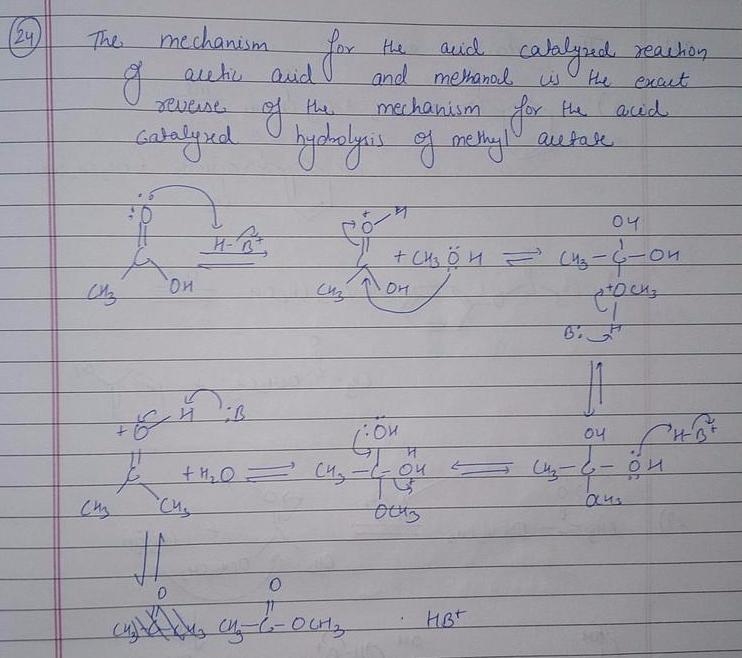 24
The mechanism for the acid catalyzed reaction
of acetic acid and methanol is the exact
reverse of the mechanism for the acid
catalyzed hydrolysis of methyl acetate
:Ö
C
CH₃ OH
H-B⁺
⁺O-H
C
CH₃ OH
+ CH₃ÖH
OH
CH₃-C-OH
⁺OCH₃
H
B:
⁺O H :B
C
CH₃ CH₃
+ H₂O
:ÖH
H
CH₃-C-OH
⁺
OCH₃
OH H-B⁺
CH₃-C-ÖH
OCH₃
O
CH₃-C-OCH₃ HB⁺